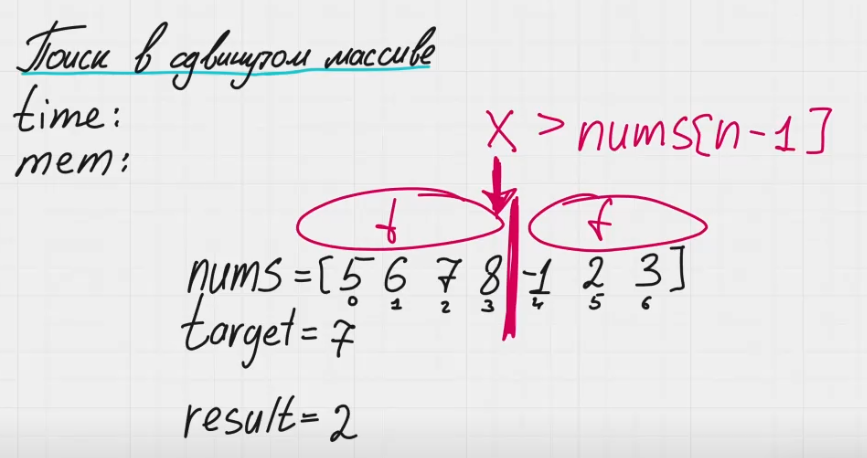 Поиск в сдвинутом массиве
time:
mem:
x > nums[n-1]
t f
nums = [5 6 7 8 -1 2 3]
0 1 2 3 4 5 6
target = 7
result = 2